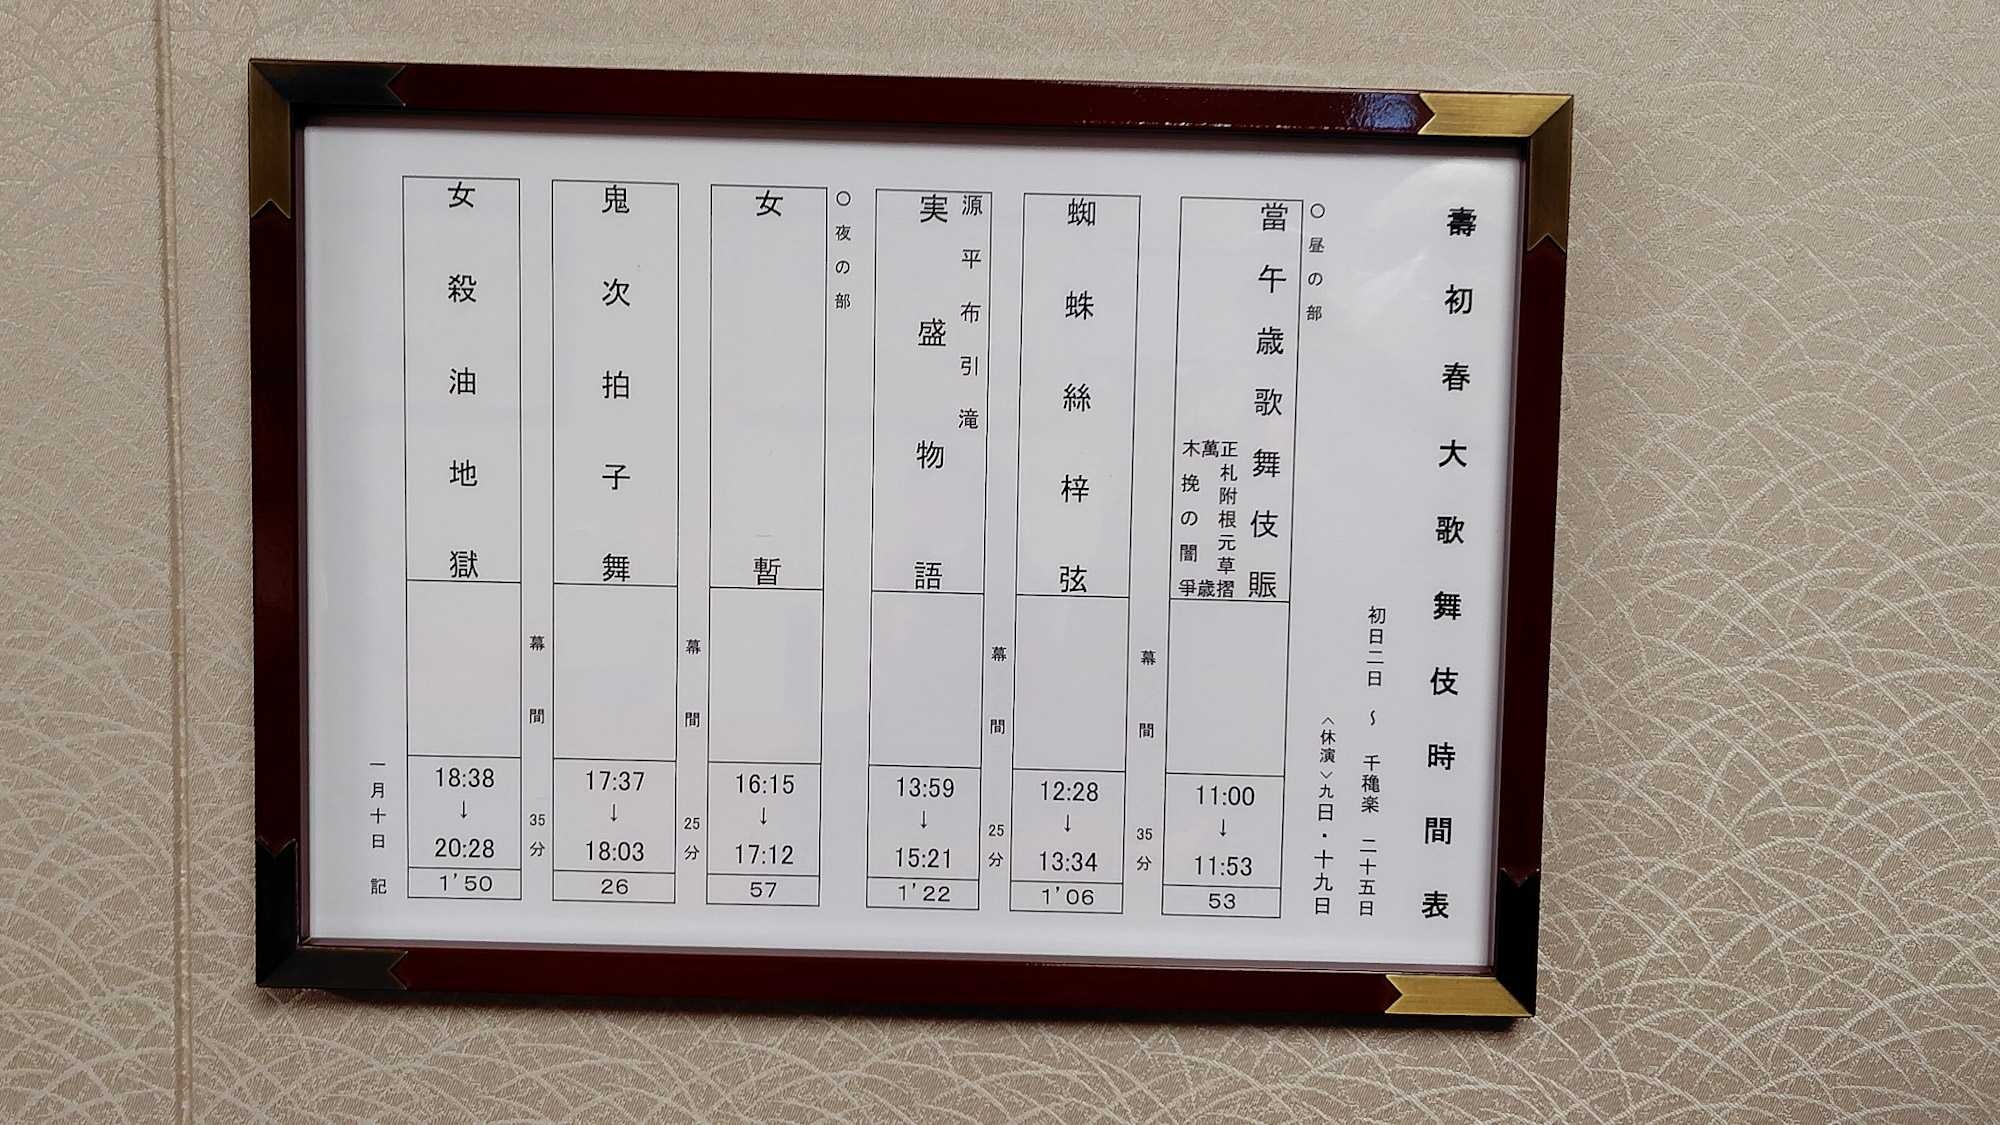 壽初春大歌舞伎時間表
初日二日 ～ 千穐楽 二十五日
〈休演〉九日・十九日
○昼の部
當午歳歌舞伎賑
正札附根元草摺
萬歳
木挽の闇爭
11:00
↓
11:53
53
幕間 35分
蜘蛛絲梓弦
12:28
↓
13:34
1'06
幕間 25分
源平布引滝
実盛物語
13:59
↓
15:21
1'22
○夜の部
女暫
16:15
↓
17:12
57
幕間 25分
鬼次拍子舞
17:37
↓
18:03
26
幕間 35分
女殺油地獄
18:38
↓
20:28
1'50
一月十日 記